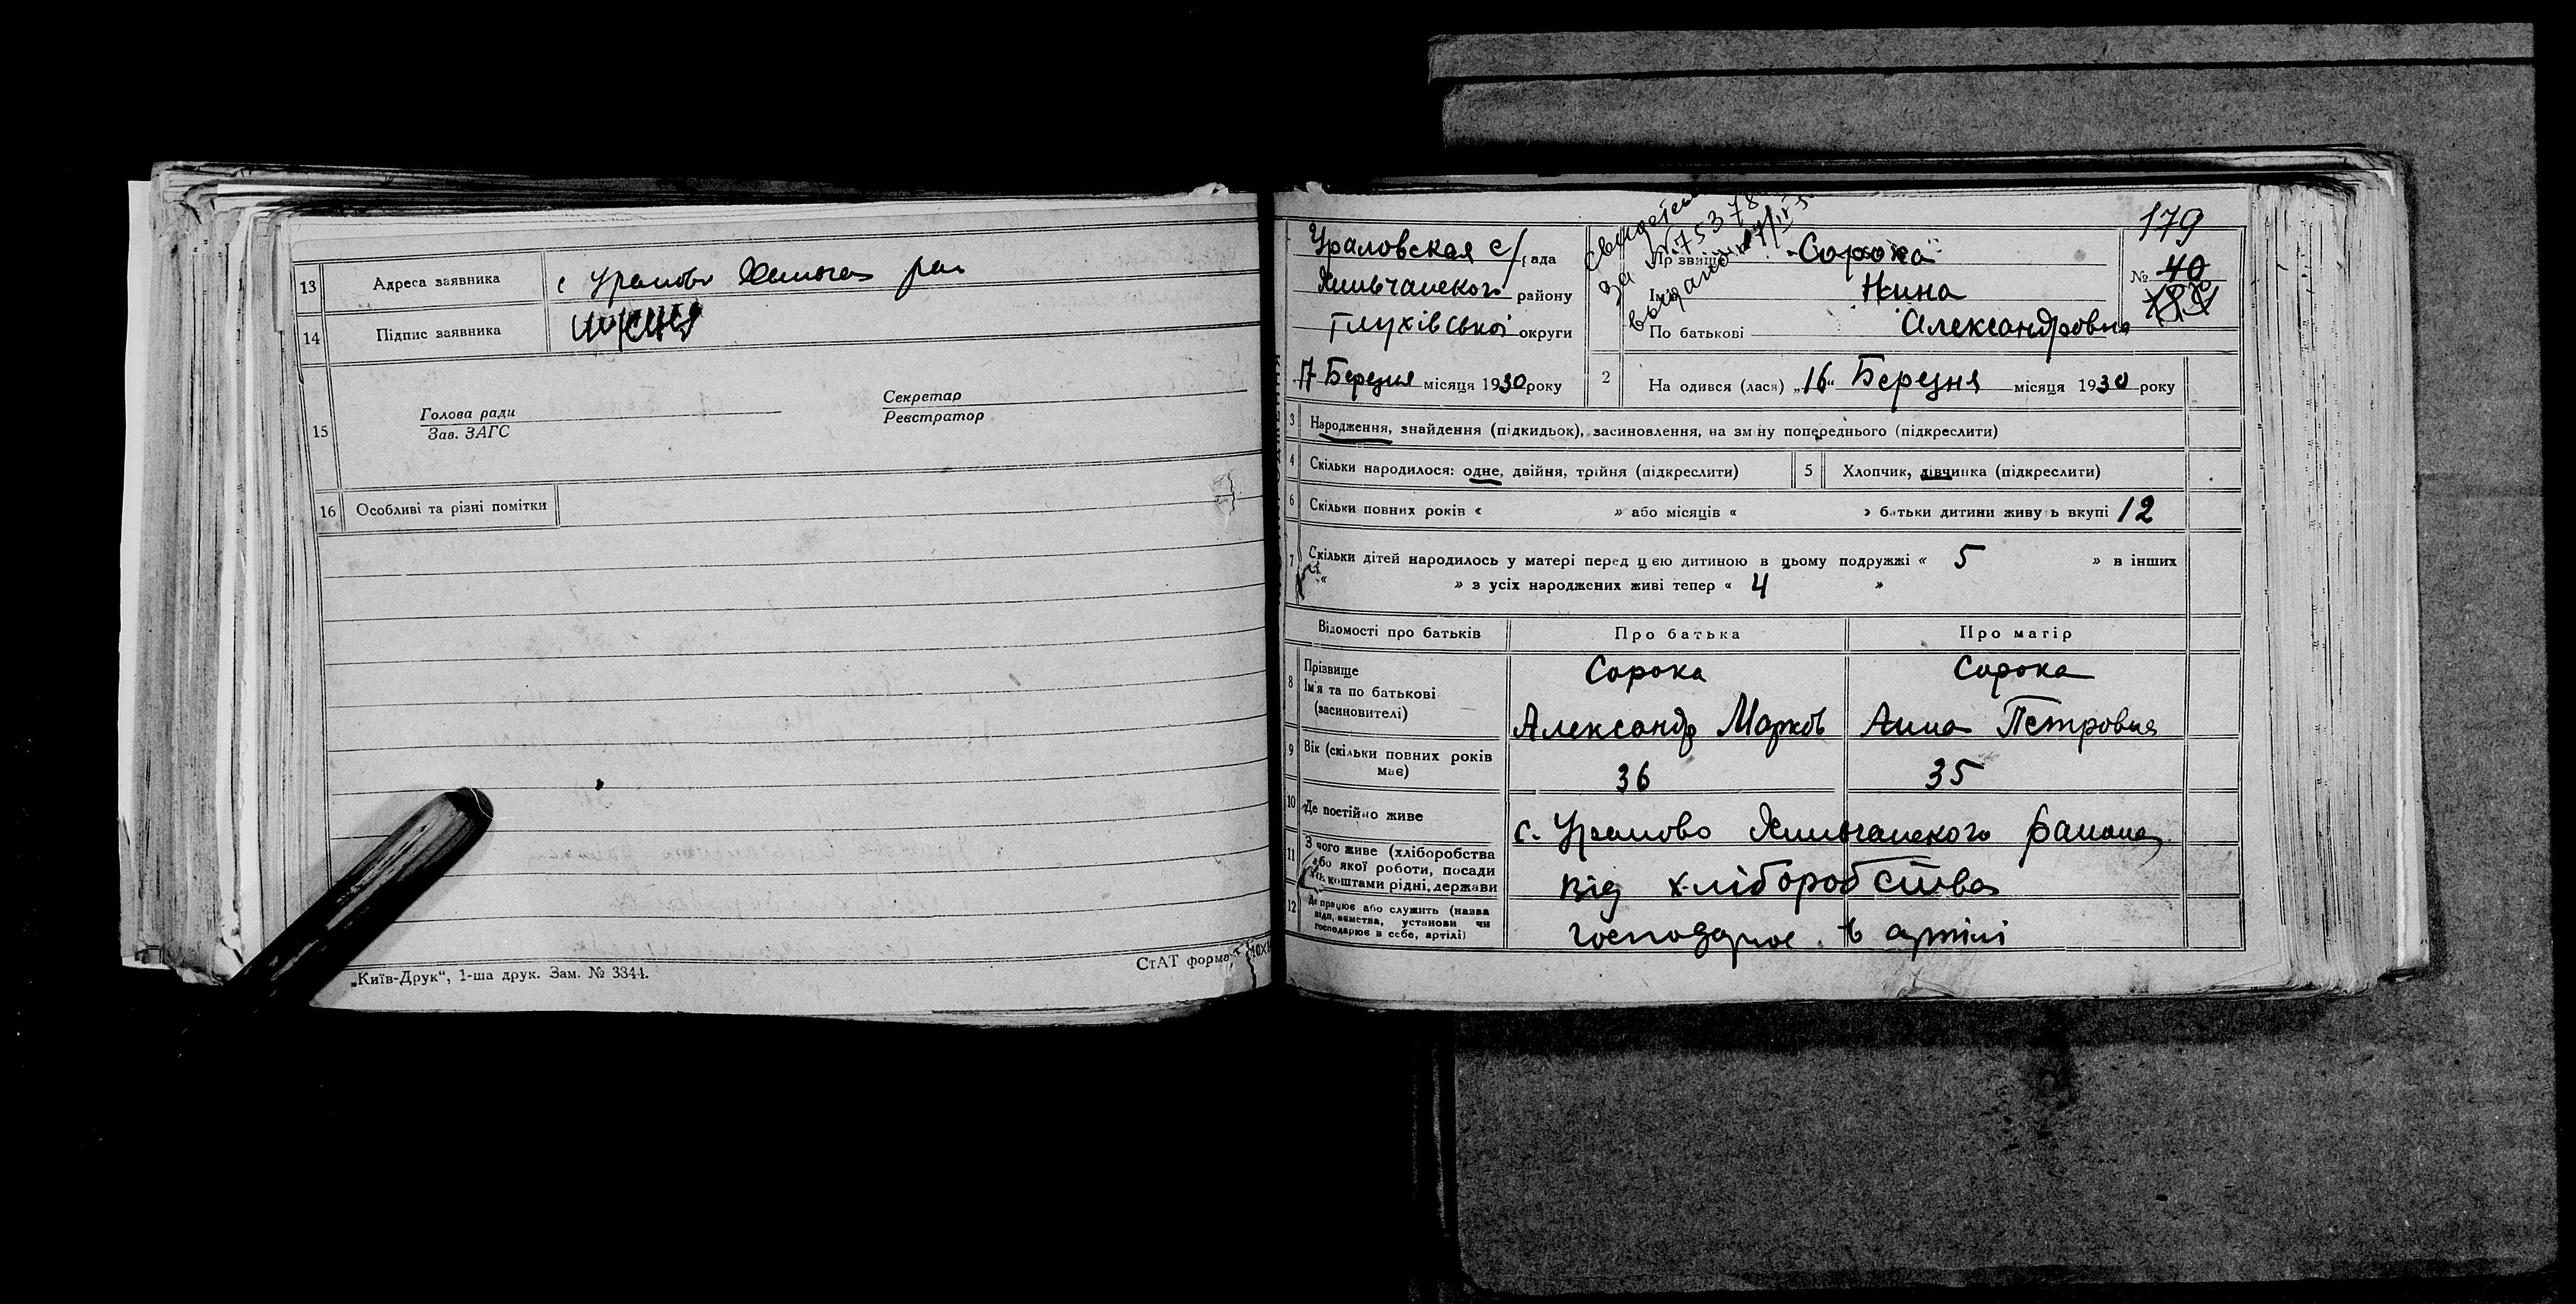 13 Адреса заявника с Уралово Хильчан рай
14 Підпис заявника
15 Голова ради
Зав. ЗАГС
Секретар
Реєстратор
16 Особливі та різні помітки
„Київ-Друк“, 1-ша друк. Зам. № 3344.
СтАТ форма
179
Свидетель
за № 75378
выдано
Ураловская с/рада
Хильчанского району
Глухівської округи
17 Березня місяця 1930 року
Прізвище Сорока
Ім'я Нина
По батькові Александровна
№ 40
2 На одився (лася) „16“ Березня місяця 1930 року
3 Народження, знайдення (підкидьок), засиновлення, на зміну попереднього (підкреслити)
4 Скільки народилося: одне, двійня, трійня (підкреслити) 5 Хлопчик, дівчинка (підкреслити)
6 Скільки повних років « » або місяців « » батьки дитини живуть вкупі 12
7 Скільки дітей народилось у матері перед цією дитиною в цьому подружжі « 5 » в інших
« » з усіх народжених живі тепер « 4 »
Відомості про батьків Про батька Про матір
8 Прізвище Сорока Сорока
Ім'я та по батькові
(засиновителі) Александр Марков Анна Петровна
9 Вік (скільки повних років
має) 36 35
10 Де постійно живе с. Уралово Хильчанского района
11 З чого живе (хліборобства
або якої роботи, посади
коштами рідні, держави від хліборобства
12 Де працює або служить (назва
підприємства, установи чи
господарює в себе, артілі) господарює в артілі